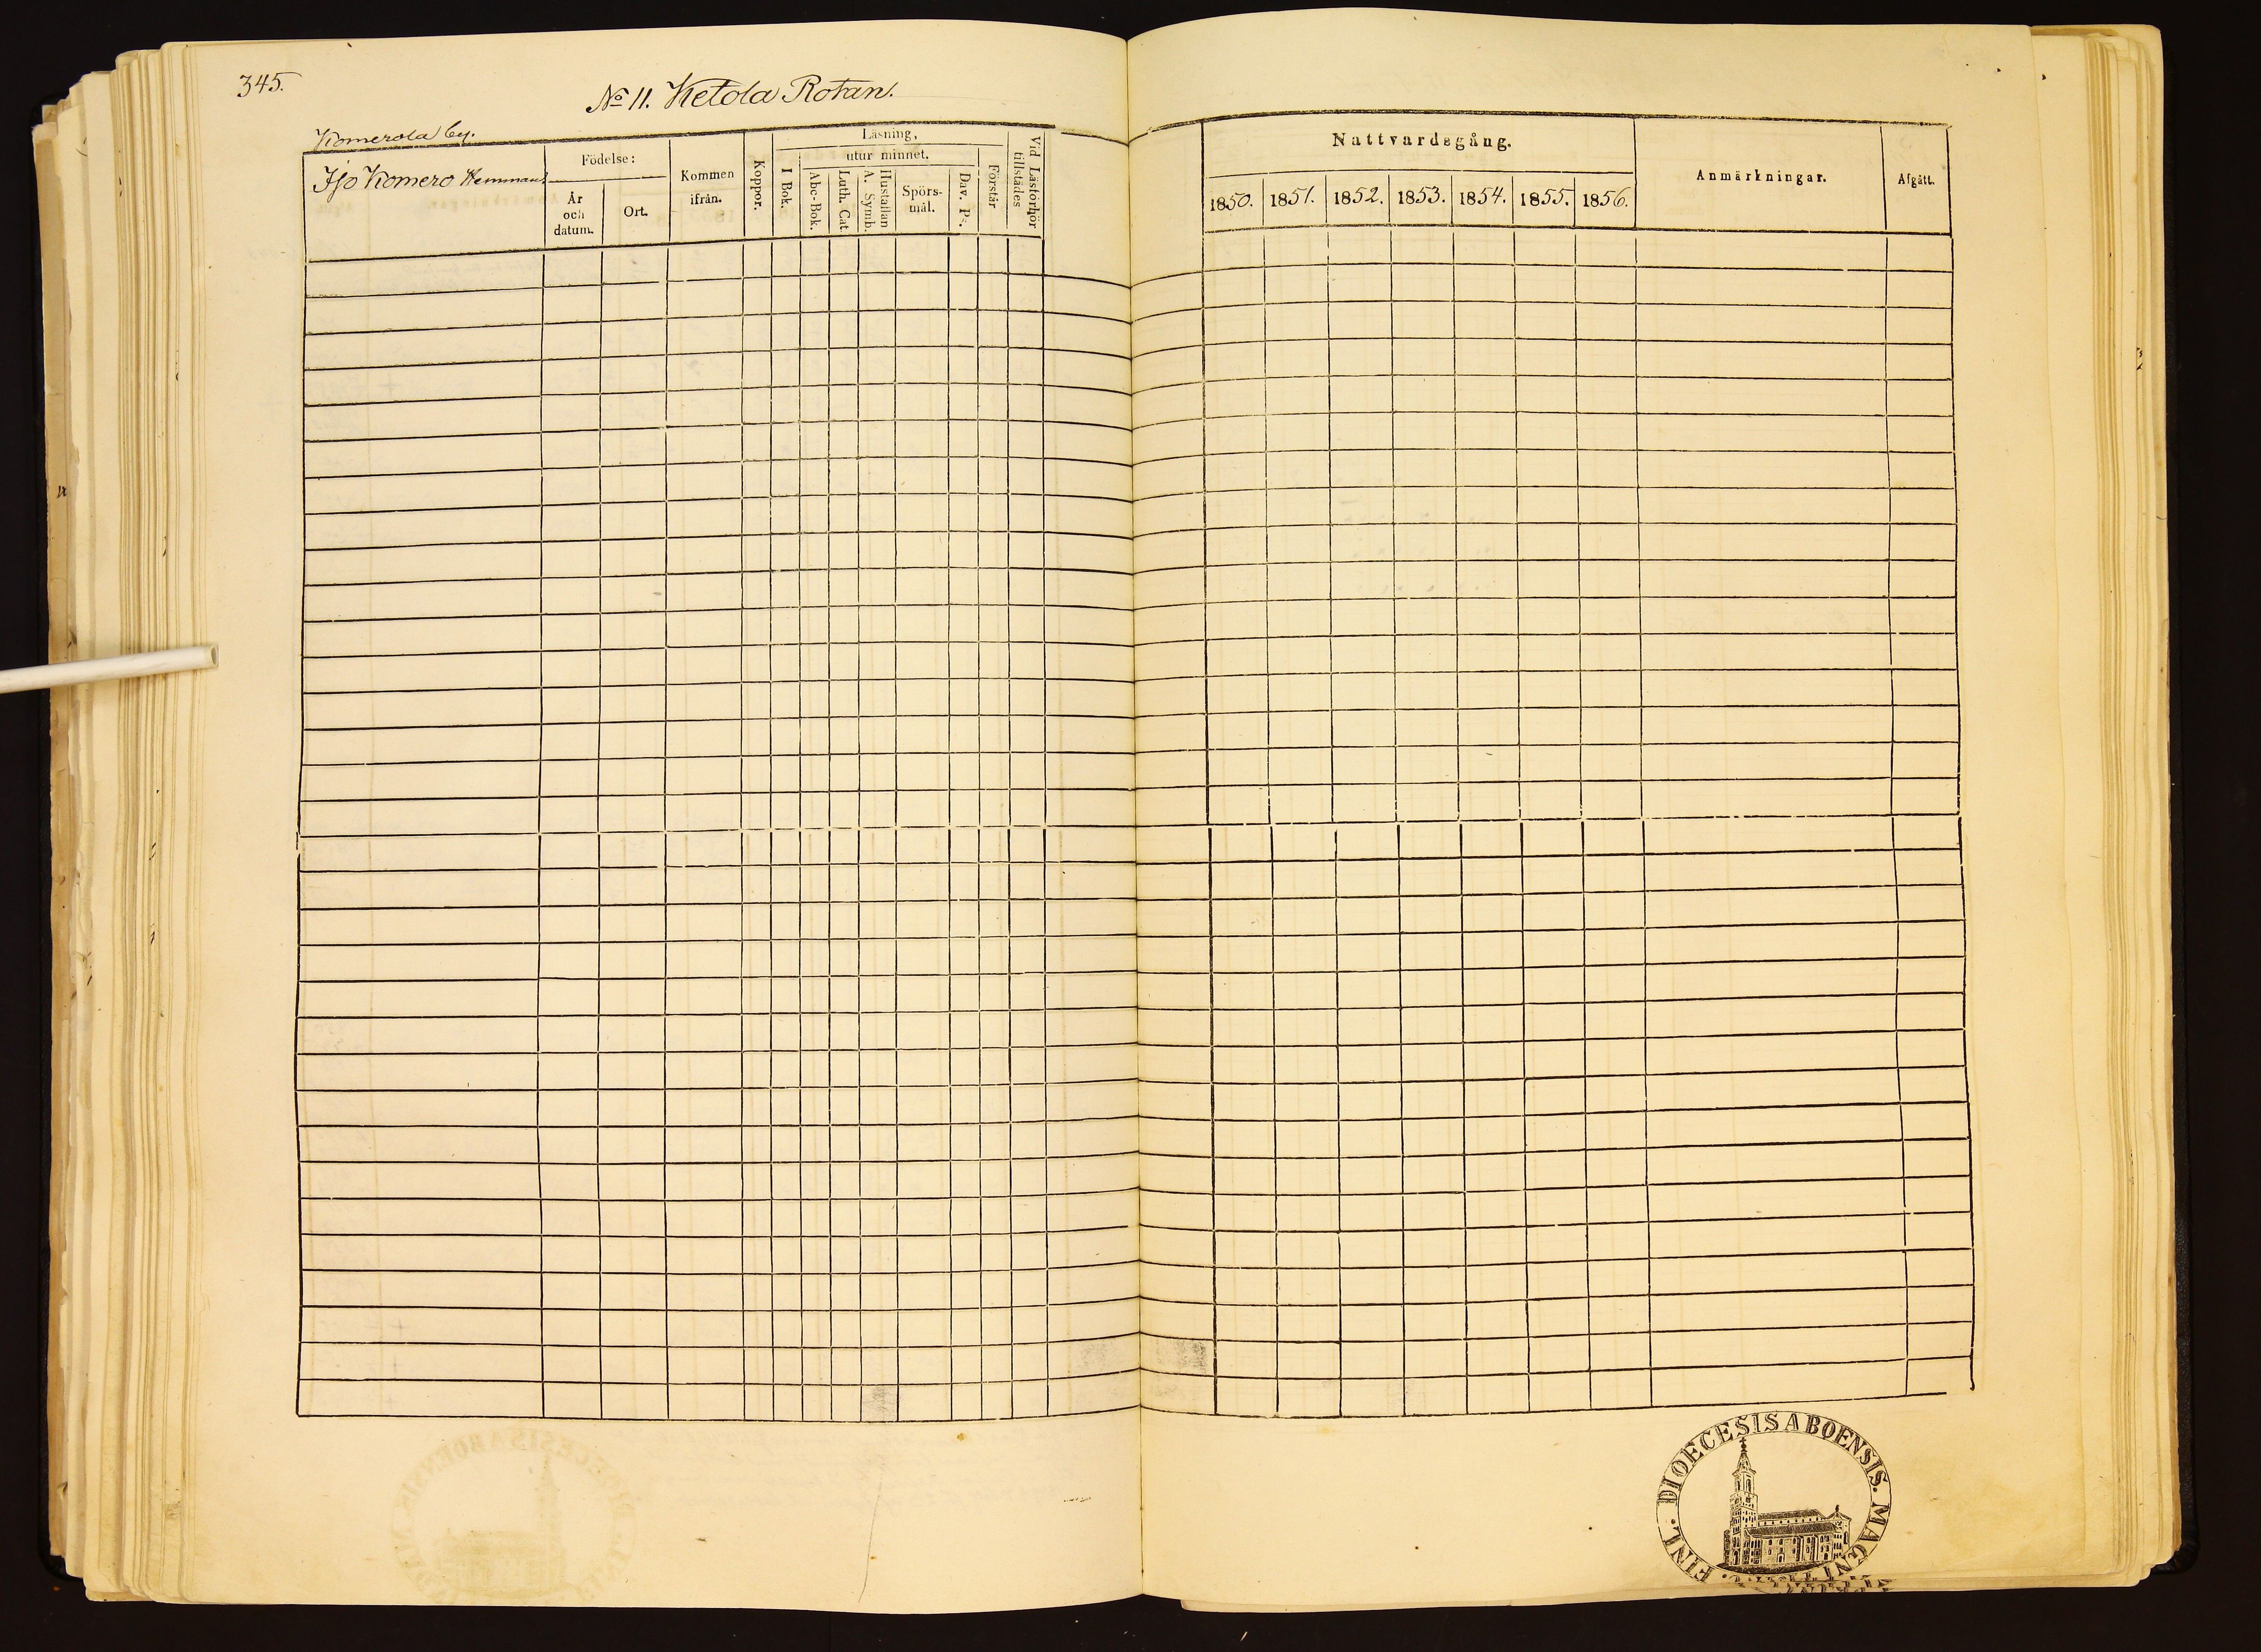 345.
No 11. Ketola Rotan.
Komerola by.
Ijo Komero Hemman
Födelse:
År
och
datum.
Ort.
Kommen
ifrån.
Koppor.
Läsning,
utur minnet.
I Bok.
Abc-Bok.
Luth. Cat.
Hustaflan
A. Symb.
Spörs-
mål.
Dav. Ps.
Förstår
Vid Läsförhör
tillstädes
Nattvardsgång.
1850. 1851. 1852. 1853. 1854. 1855. 1856.
Anmärkningar.
Afgått.
FINL. DIOECESIS ABOENSIS. MAGNI